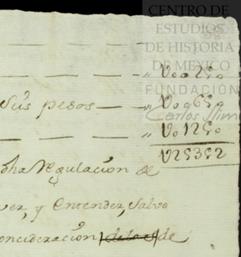 CENTRO DE
ESTUDIOS
DE HISTORIA
DE MEXICO
FUNDACIÓN
Carlos Slim
— — — — — „ V0 0 250
Sus pesos — — „ V0 9650
— — — — — „ V0 1250
V25352
dha regulacion de
ver, y entender, salvo
oncideracion de